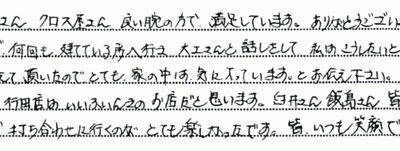 さん クロス屋さん 良い腕の方で 満足しています。ありがとうござい
何回も 建てている所へ行き 大工さんと 話しをして 私は こうしたいと
えて 頂いたので とても 家の中は 気に入っています。とお伝え下さい。
行田店は いいふんいきの お店だと 思います。臼井さん 飯島さん 皆
打ち合わせに行くのが とても楽しかったです。皆 いつも 笑顔で